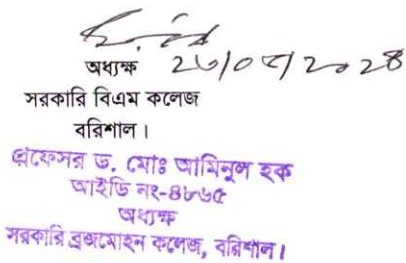 অধ্যক্ষ ২৬/০৫/২০২৪
সরকারি বিএম কলেজ
বরিশাল।
প্রফেসর ড. মোঃ আমিনুল হক
আইডি নং-৪৮৬৫
অধ্যক্ষ
সরকারি ব্রজমোহন কলেজ, বরিশাল।